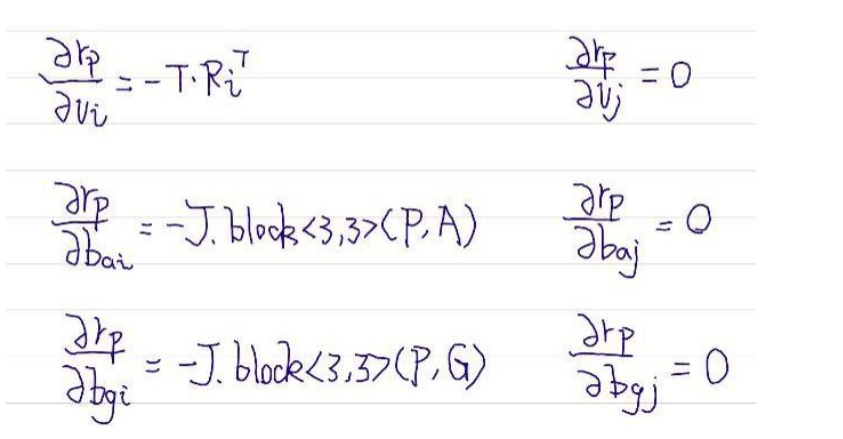 ∂rp/∂vi = -T·Ri^T  ∂rp/∂vj = 0
∂rp/∂bai = -J.block<3,3>(P,A)  ∂rp/∂baj = 0
∂rp/∂bgi = -J.block<3,3>(P,G)  ∂rp/∂bgj = 0